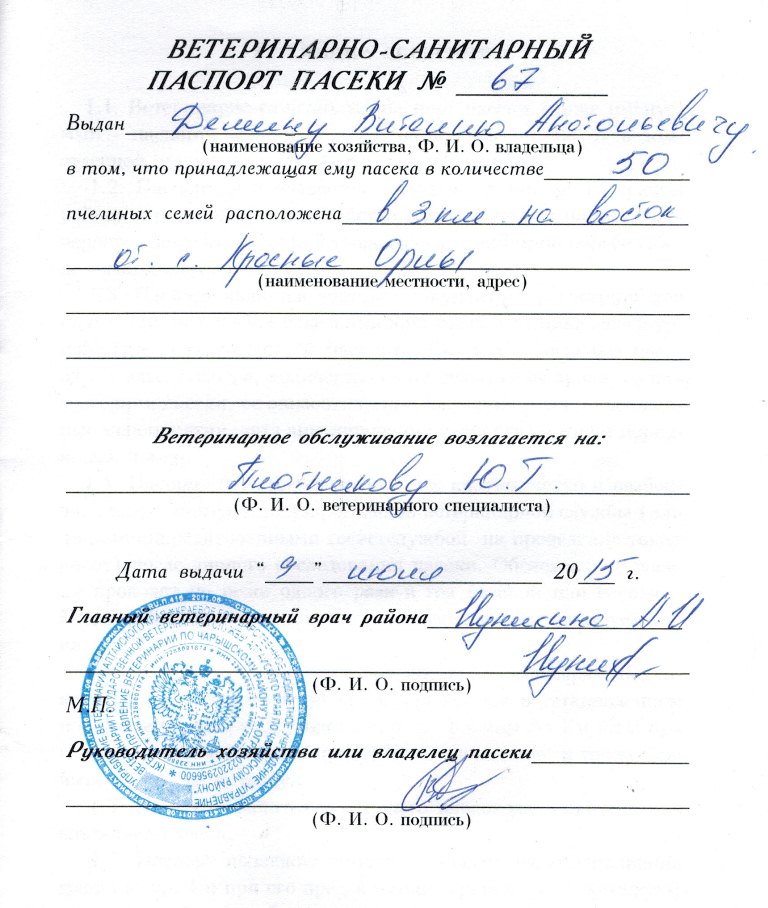 ВЕТЕРИНАРНО-САНИТАРНЫЙ
ПАСПОРТ ПАСЕКИ № 67
Выдан Демину Виталию Анатольевичу
(наименование хозяйства, Ф. И. О. владельца)
в том, что принадлежащая ему пасека в количестве 50.
пчелиных семей расположена в 3 км. на восток
от. с. Красные Орлы.
(наименование местности, адрес)
Ветеринарное обслуживание возлагается на:
Плотникову Ю.Г
(Ф. И. О. ветеринарного специалиста)
Дата выдачи “ 9 ” июля 20 15 г.
Главный ветеринарный врач района А.И
(Ф. И. О. подпись)
М.П.
Руководитель хозяйства или владелец пасеки
(Ф. И. О. подпись)